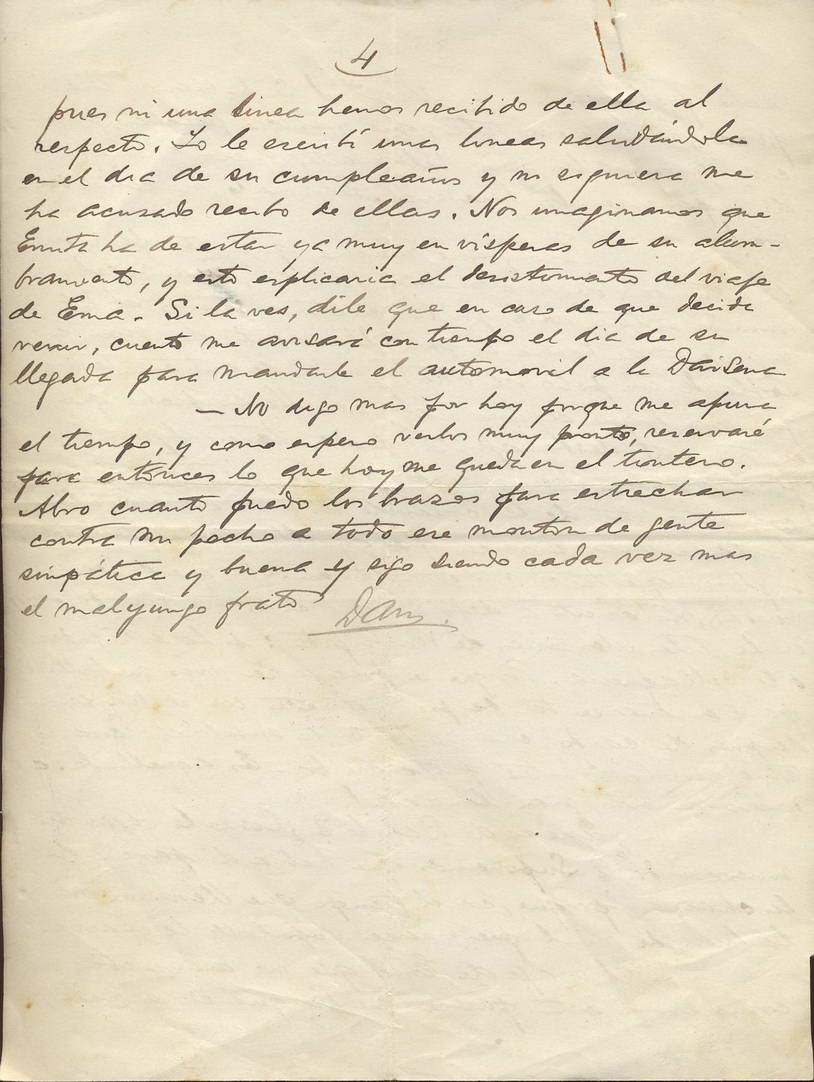 4
pues ni una linea hemos recibido de ella al
respecto. Yo le escribí unas lineas saludándola
en el dia de su cumpleaños y ni siquiera me
ha acusado recibo de ellas. Nos imaginamos que
Emita ha de estar ya muy en vísperas de su alum-
bramiento, y esto esplicaria el desistimiento del viaje
de Ema. Si la ves, dile que en caso de que decida
venir, cuento me avisará con tiempo el dia de su
llegada para mandarle el automovil a la Darsena
— No digo mas por hoy porque me apura
el tiempo, y como espero verlos muy pronto, reservaré
para entonces lo que hoy me queda en el tintero.
Abro cuanto puedo los brazos para estrechar
contra mi pecho a todo ese monton de gente
simpática y buena y sigo siendo cada vez mas
el